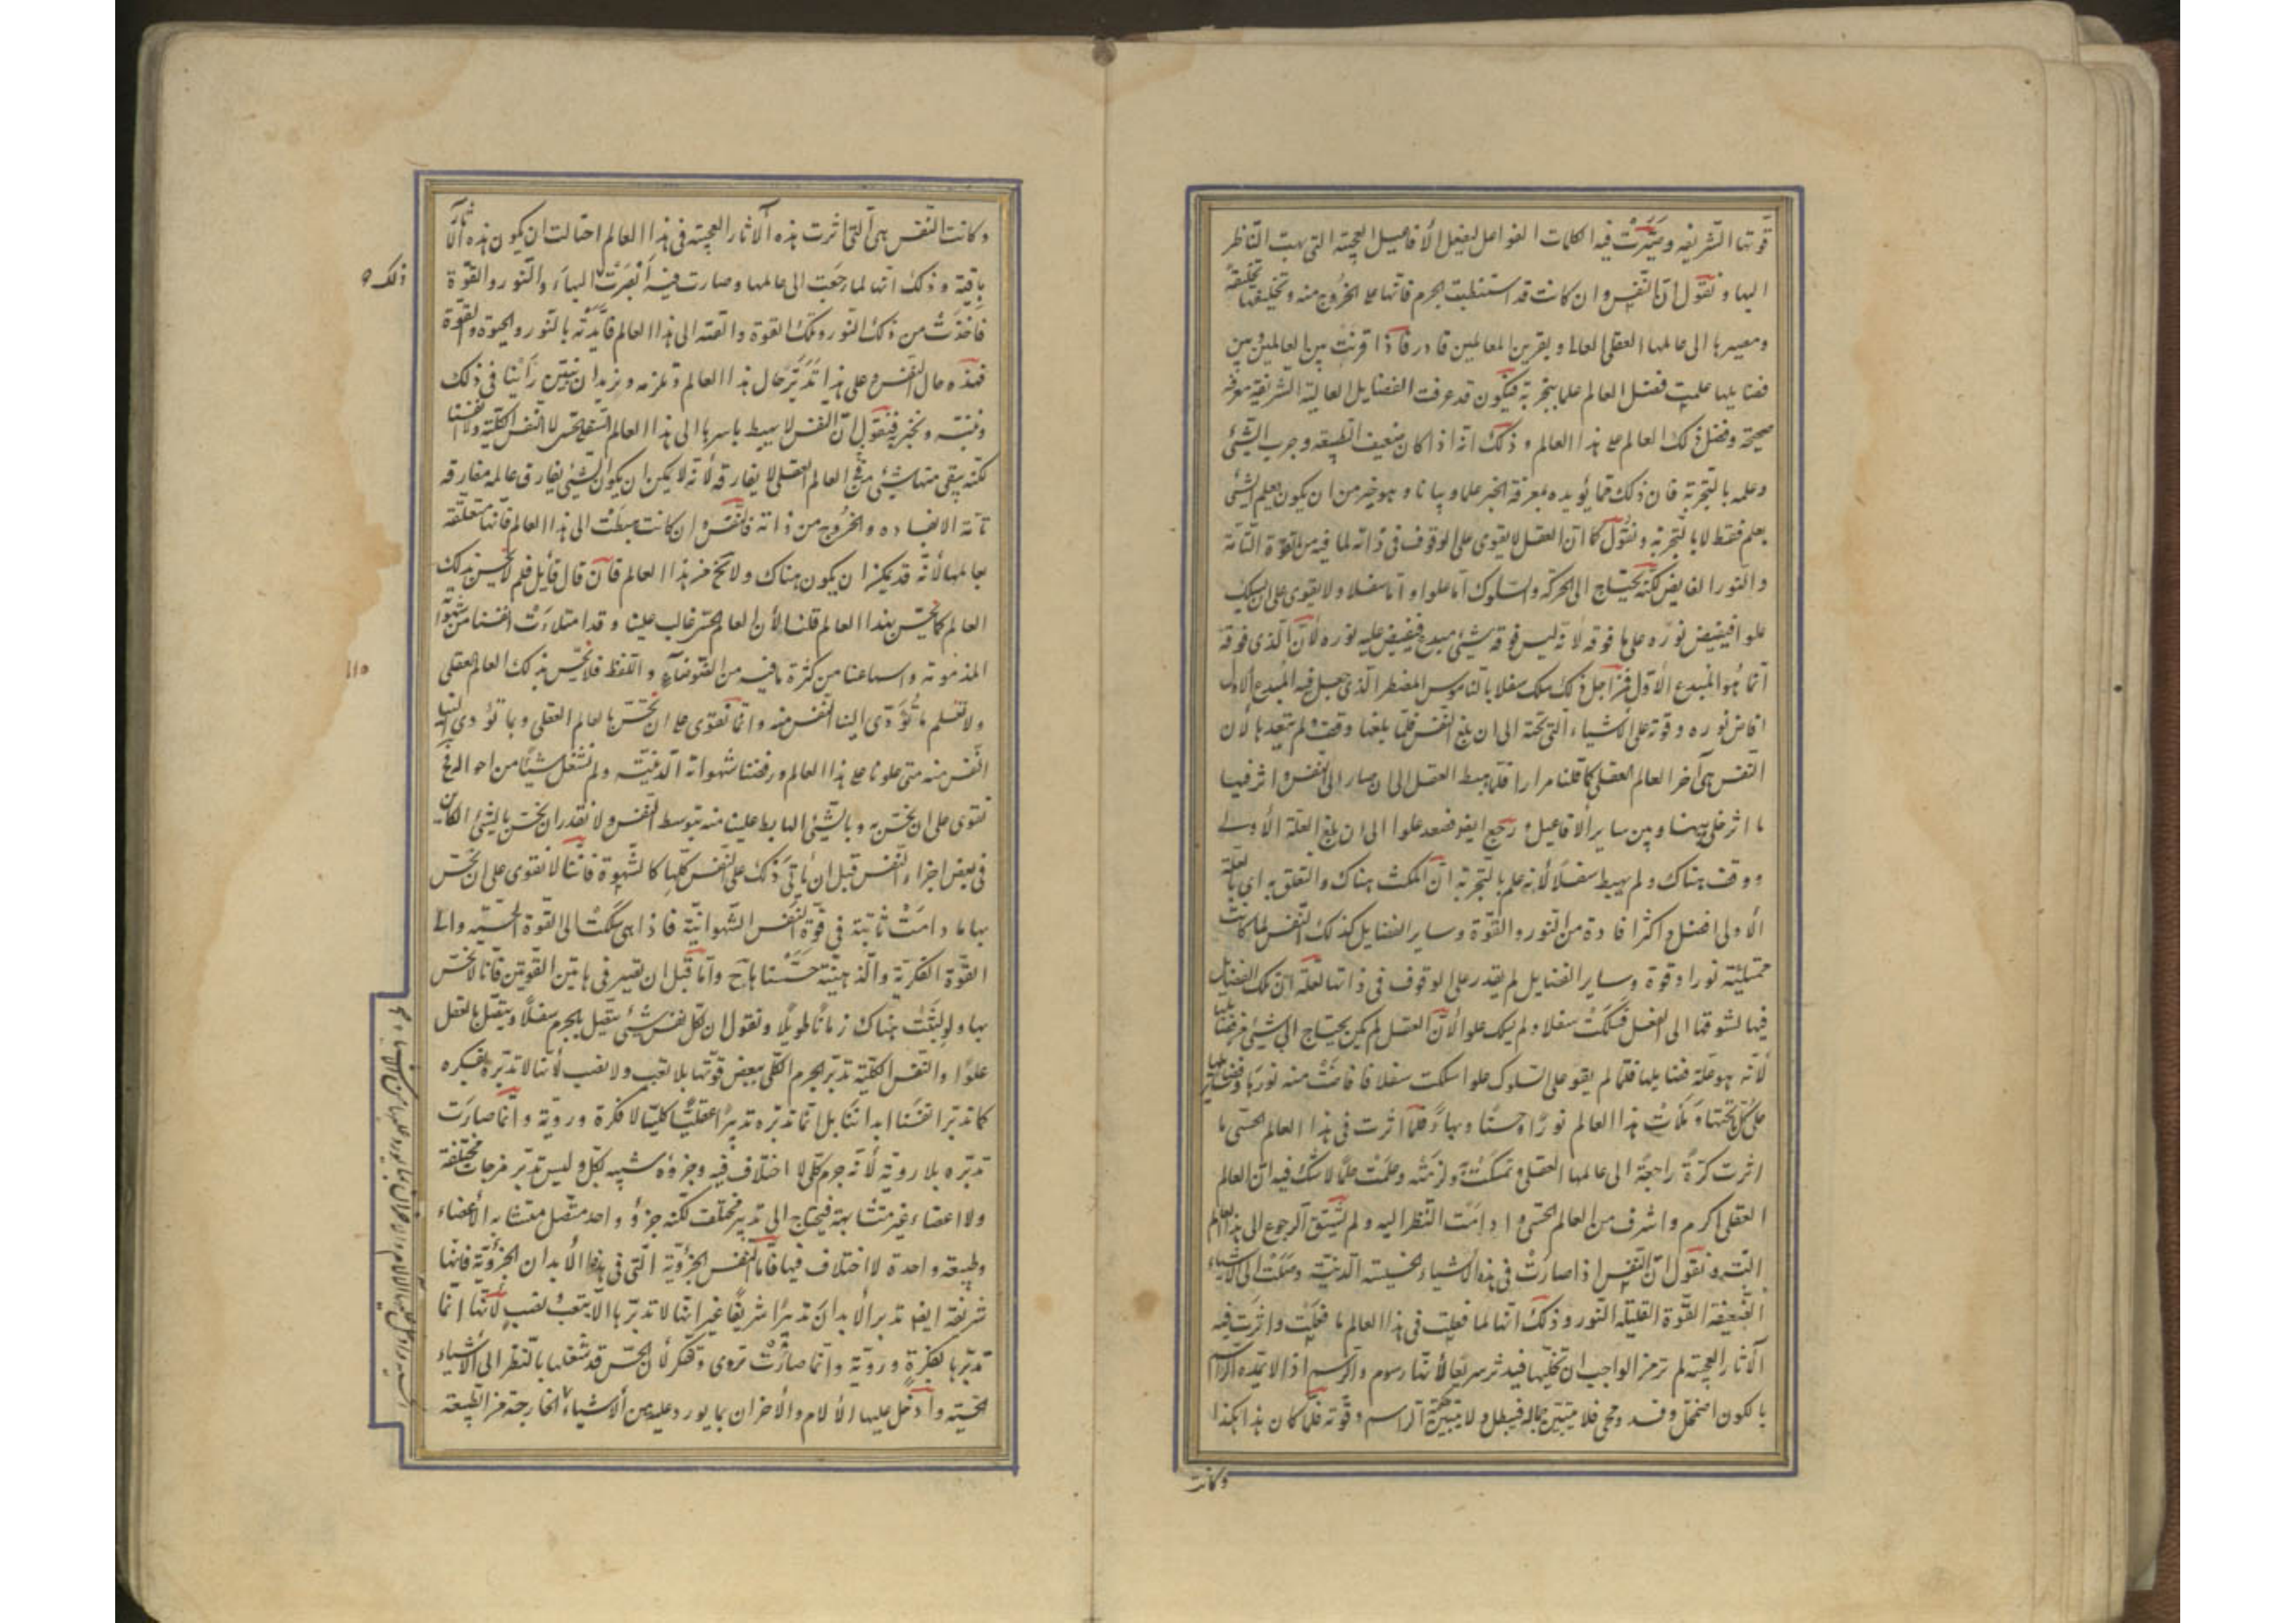 قوتها الشريفه وصيّرت فيه الكلمات الفواعل ليفعل الأفاعيل العجيبة التى يبهت الناظر
اليها ونقول ان النفس وان كانت قد استنبطت الجرم فانها على الخروج منه وتخليفها
ومصيرها الى عالمها العقلى العالى ويقرن العالمين قادر فاذا قرنت بين العالمين وبين
فضايلها علمت فضل العالم علما بتجربة فيكون قد عرفت الفضايل العالية الشريفة معرفة
صحيحة وفضل ذلك العالم على هذا العالم وذلك انه اذا كان ضعيف الطبيعه وجرب الشئ
وعلمه بالتجربة فان ذلك مما يؤيده بمعرفة الخير علما وبيانا وهو خير من ان يكون يعلم الشئ
بعلم فقط لا بالتجربة ونقول كما ان العقل لا يقوى على الوقوف فى ذاته لما فيه من القوة التامة
والنور الفايض لكنه يحتاج الى الحركة والسلوك اما علوا واما سفلا ولا يقوى على ان يسلك
علوا فيفيض نوره على ما فوقه لانه ليس فوقه شئ مبدع فيفيض عليه نوره لأن الذى فوقه
انما هو المبدع الأول فمن اجل ذلك سلك سفلا بالناموس المضطر الذى جعل فيه المبدع الاول
افاض نوره وقوته على الاشياء التى تحته الى ان بلغ النفس فلما بلغها وقف ولم يتعدها لأن
النفس هى آخر العالم العقلى كما قلنا مرارا فلما هبط العقل الى ان صار الى النفس واثر فيها
ما اثر خلى بينها وبين ساير الأفاعيل ورجع ايضا فصعد علوا الى ان بلغ العلة الأولى
ووقف هناك ولم يهبط سفلا لأنه علم بالتجربة ان المكث هناك والتعلق به اى بالعلة
الأولى افضل واكثر افادة من النور والقوّة وساير الفضايل كذلك النفس لما كانت
ممتلئة نورا وقوة وساير الفضايل لم يقدر على الوقوف فى ذاتها لعلة ان تلك الفضايل
فيها تشوقها الى الفعل فسلكت سفلا ولم يسلك علوا لأن العقل لم يكن يحتاج الى شئ من فضايلها
لأنه هو علة فضايلها فلما لم يقو على السلوك علوا سلكت سفلا فافاضت منه نورها وفضايلها
على كل تحتها وملأت هذا العالم نورا وحسنا وبهاء فلما اثرت فى هذا العالم الحسى ما
اثرت كرّة راجعة الى عالمها العقلى وتمسكت به ولزمته وعلمت علما لا شك فيه ان العالم
العقلى اكرم واشرف من العالم الحسى وادامت النظر اليه ولم تشتق الرجوع الى هذا العالم
البتة ونقول ان النفس اذا صارت فى هذه الاشياء الخسيسة الدنية وصلت الى الاشياء
الضعيفة القوّة القليلة النور وذلك انها لما فعلت فى هذا العالم ما فعلت واثرت فيه
الآثار العجيبة لم تر من الواجب ان تخليها فيدثر سريعا لأنها رسوم والرسم اذا لا يمدّه الراسم
بالكون اضمحل وفسد ومحى فلا يتبين جماله فيبطل ولا يتبين حكمة الراسم وقوته فلما كان هذا هكذا
وكانت
وكانت النفس هى التى اثرت هذه الآثار العجيبة فى هذا العالم احتالت ان يكون هذه الآثار
باقية وذلك انها لما رجعت الى عالمها وصارت فيه أبصرت البهاء والنور والقوّة
ذلك
فأخذت من ذلك النور وتلك القوة والقته الى هذا العالم فأيدته بالنور والحيوة والقوة
فهذه حال النفس وعلى هذا تدبر حال هذا العالم وتلزمه ونريد ان نبين رأينا فى ذلك
ونثبته ونخبر به فنقول ان النفس لا يهبط باسرها الى هذا العالم السفلى الحس لا النفس الكلية ولا نفسنا
لكنه يبقى منها شئ فى العالم العقلى لا يفارقه لأنه لا يمكن ان يكون الشئ يفارق عالمه مفارقة
تامة الا بفساده والخروج من ذاته فالنفس وان كانت هبطت الى هذا العالم فانها متعلقة
بعالمها لأنه قد يمكن ان يكون هناك ولا يخ من هذا العالم فان قال قائل فلم لا نحس بذلك
العالم كما نحس بهذا العالم قلنا لأن العالم الحسى غالب علينا وقد امتلأت انفسنا من شهواته
المذمومة واسماعنا من كثرة ما فيه من الضوضاء واللفظ فلا نحس بذلك العالم العقلى
١١٥
ولا نعلم ما تؤدى الينا النفس منه وانما نقوى على ان نحس بالعالم العقلى وبما تؤدى الينا
النفس منه متى علونا على هذا العالم ورفضنا شهواته الدنية ولم نشتغل بشئ من احواله فح
نقوى على ان نحس به وبالشئ الهابط علينا منه بتوسط النفس ولا نقدر ان نحس بالشئ الكائن
فى بعض اجزاء النفس قبل ان يأتى ذلك على النفس كلها كالشهوة فاننا لا نقوى على ان نحس
بها ما دامت ثابتة فى قوة النفس الشهوانية فاذا هى سلكت الى القوة الحسية والى
القوة الفكرية والذهنية حسسنا بها ح واما قبل ان تصير فى هاتين القوتين فانا لا نحس
بها ولو لبثت هناك زمانا طويلا ونقول ان لكل نفس شئ يتصل بالجرم سفلا ويتصل بالعقل
علوا والنفس الكلية تدبر الجرم الكلى ببعض قوتها بلا تعب ولا نصب لأنها لا تدبره بالفكرة
كما تدبر انفسنا ابداننا بل انما تدبره تدبيرا عقليا كليا لا فكرة ورويّة وانما صارت
تدبره بلا رويّة لأنه جرم كلى لا اختلاف فيه وجزؤه شبيه بكله وليس تدبر مزجات مختلفة
ولا اعضاء غير متشابهة فيحتاج الى تدبير مختلف لكنه جزؤ واحد متصل متشابه الأعضاء
وطبيعة واحدة لا اختلاف فيها فاما النفس الجزؤية التى فى هذه الأبدان الجزؤية فانها
شريفة ايضا تدبر الأبدان تدبيرا شريفا غير انها لا تدبرها الا بتعب ونصب لأنها انما
تدبرها بفكرة ورويّة وانما صارت تروى وتفكر لأن الحس قد شغلها بالنظر الى الأشياء
الحسية وأدخل عليها الآلام والأحزان بما يورد عليها من الأشياء الخارجة من الطبيعة